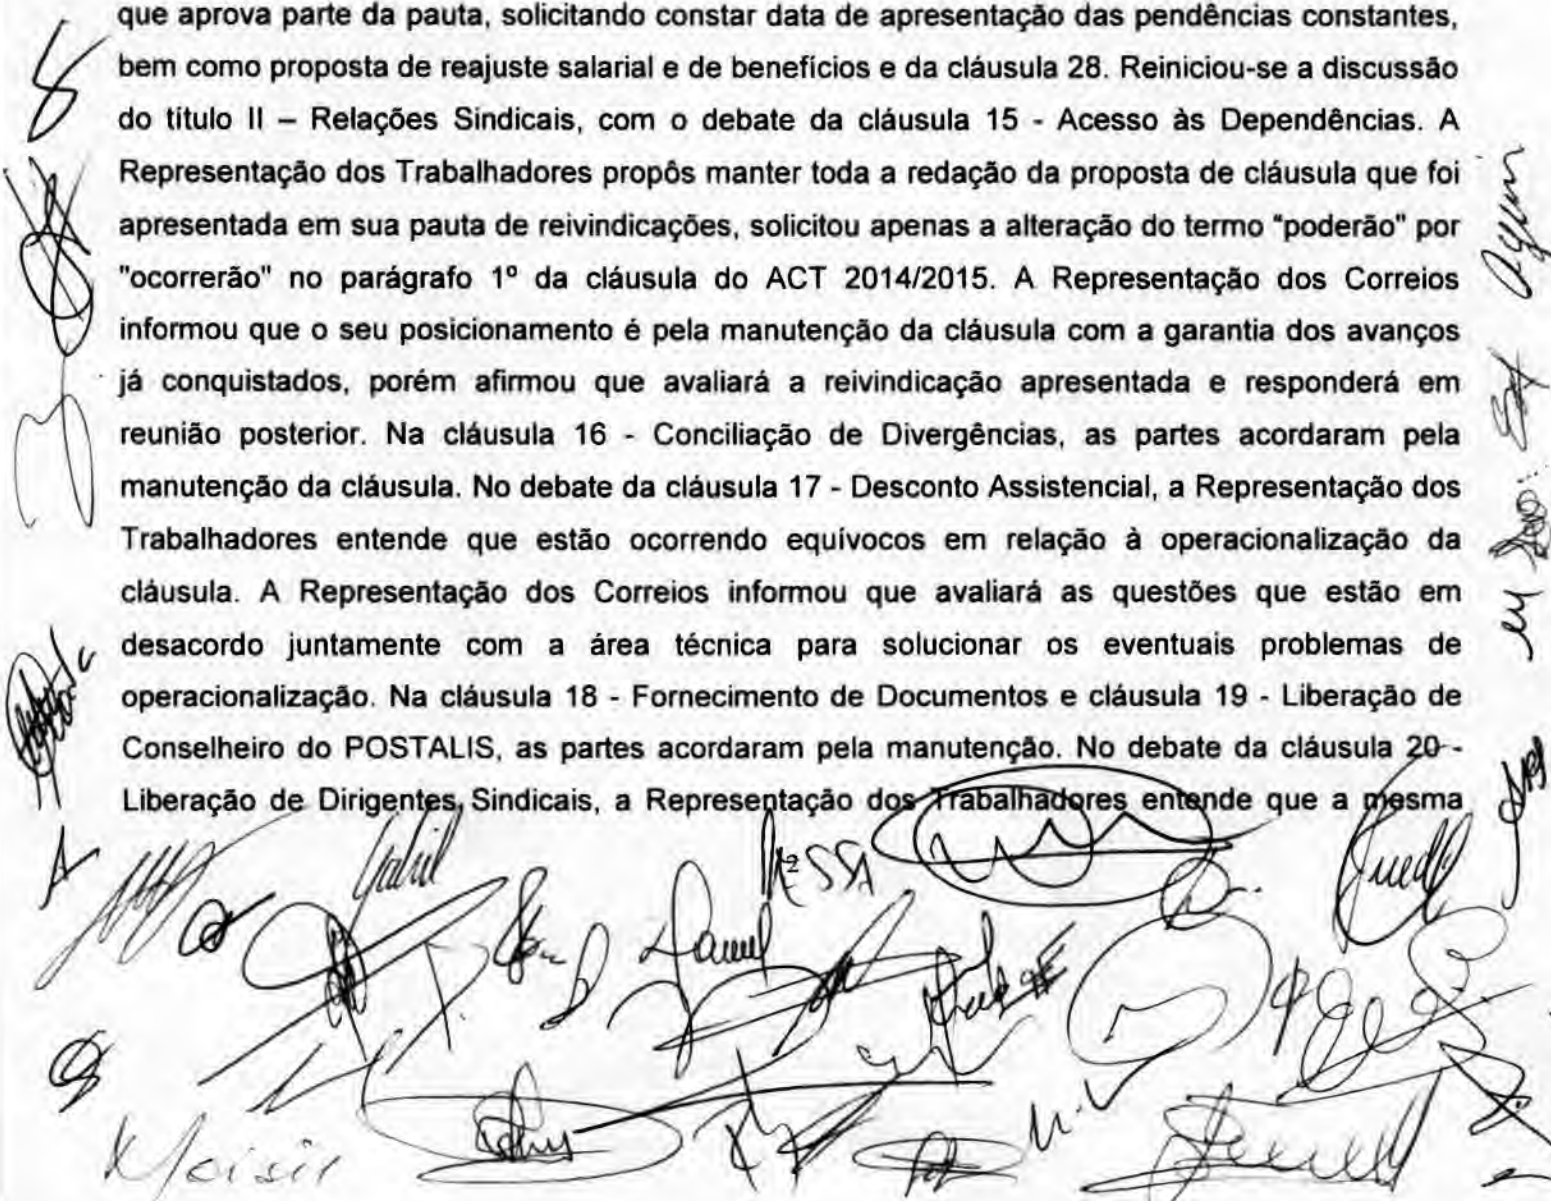 que aprova parte da pauta, solicitando constar data de apresentação das pendências constantes,
bem como proposta de reajuste salarial e de benefícios e da cláusula 28. Reiniciou-se a discussão
do título II – Relações Sindicais, com o debate da cláusula 15 - Acesso às Dependências. A
Representação dos Trabalhadores propôs manter toda a redação da proposta de cláusula que foi
apresentada em sua pauta de reivindicações, solicitou apenas a alteração do termo "poderão" por
"ocorrerão" no parágrafo 1º da cláusula do ACT 2014/2015. A Representação dos Correios
informou que o seu posicionamento é pela manutenção da cláusula com a garantia dos avanços
já conquistados, porém afirmou que avaliará a reivindicação apresentada e responderá em
reunião posterior. Na cláusula 16 - Conciliação de Divergências, as partes acordaram pela
manutenção da cláusula. No debate da cláusula 17 - Desconto Assistencial, a Representação dos
Trabalhadores entende que estão ocorrendo equívocos em relação à operacionalização da
cláusula. A Representação dos Correios informou que avaliará as questões que estão em
desacordo juntamente com a área técnica para solucionar os eventuais problemas de
operacionalização. Na cláusula 18 - Fornecimento de Documentos e cláusula 19 - Liberação de
Conselheiro do POSTALIS, as partes acordaram pela manutenção. No debate da cláusula 20 -
Liberação de Dirigentes Sindicais, a Representação dos Trabalhadores entende que a mesma